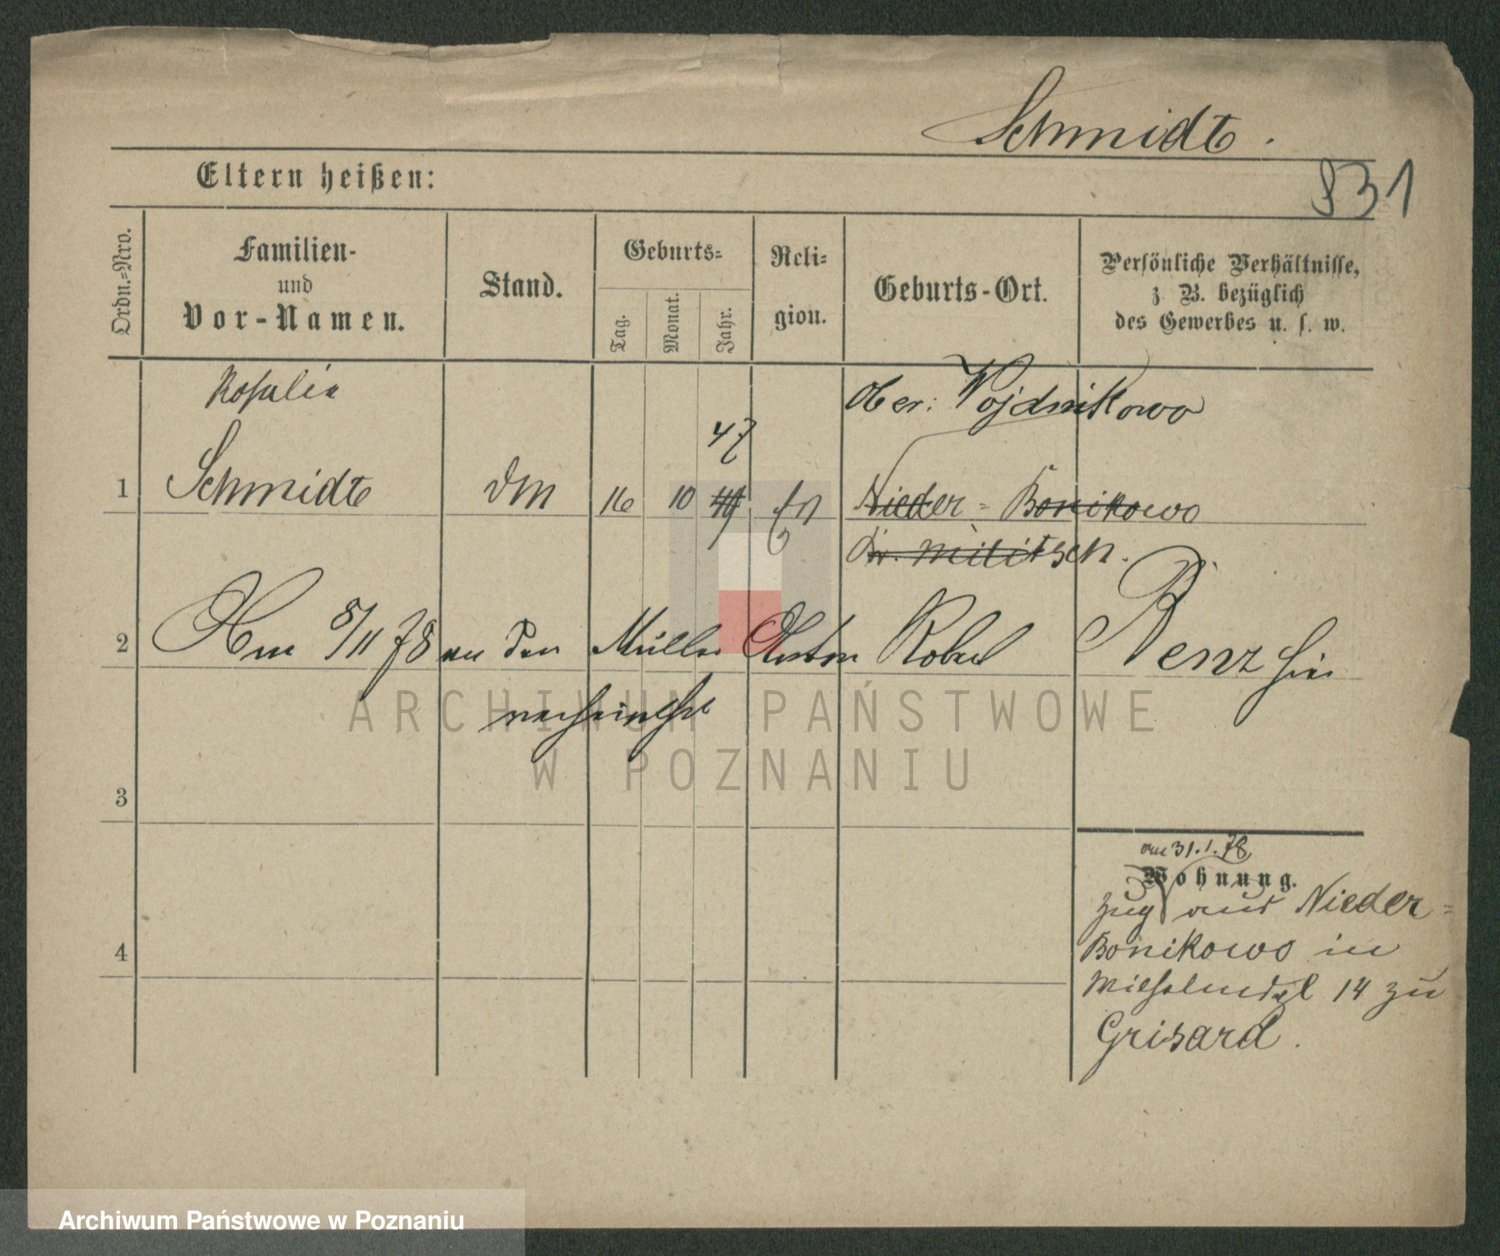 Schmidt.
831
Eltern heißen:
Ordn.-Nro.
Familien-
und
Vor-Namen.
Stand.
Geburts-
Tag.
Monat.
Jahr.
Reli-
gion.
Geburts-Ort.
Persönliche Verhältnisse,
z. B. bezüglich
des Gewerbes u. s. w.
Rosalie
Ober: Wojdnikowo
47
1 Schmidt 16 10 49 Nieder-Bonikowo
Kr. Militsch.
2 Am 8/11 78 an den Müller Anton Robert Renz hier
verheirathet
3
am 31.1.78
Wohnung.
zug aus Nieder-
Bonikowo in
4
14 zu
Grisard.
ARCHIWUM PAŃSTWOWE
W POZNANIU
Archiwum Państwowe w Poznaniu